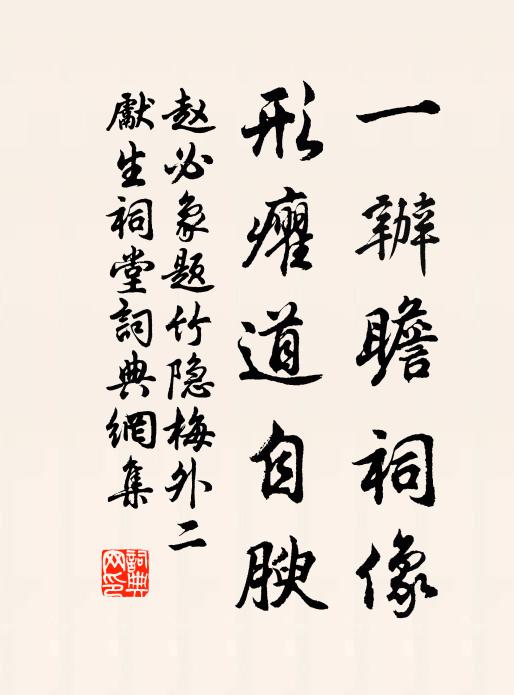 一辦瞻祠像
形癯道自腴
赵必象题竹隐梅外二
獻生祠堂詞典網集
詞典网印